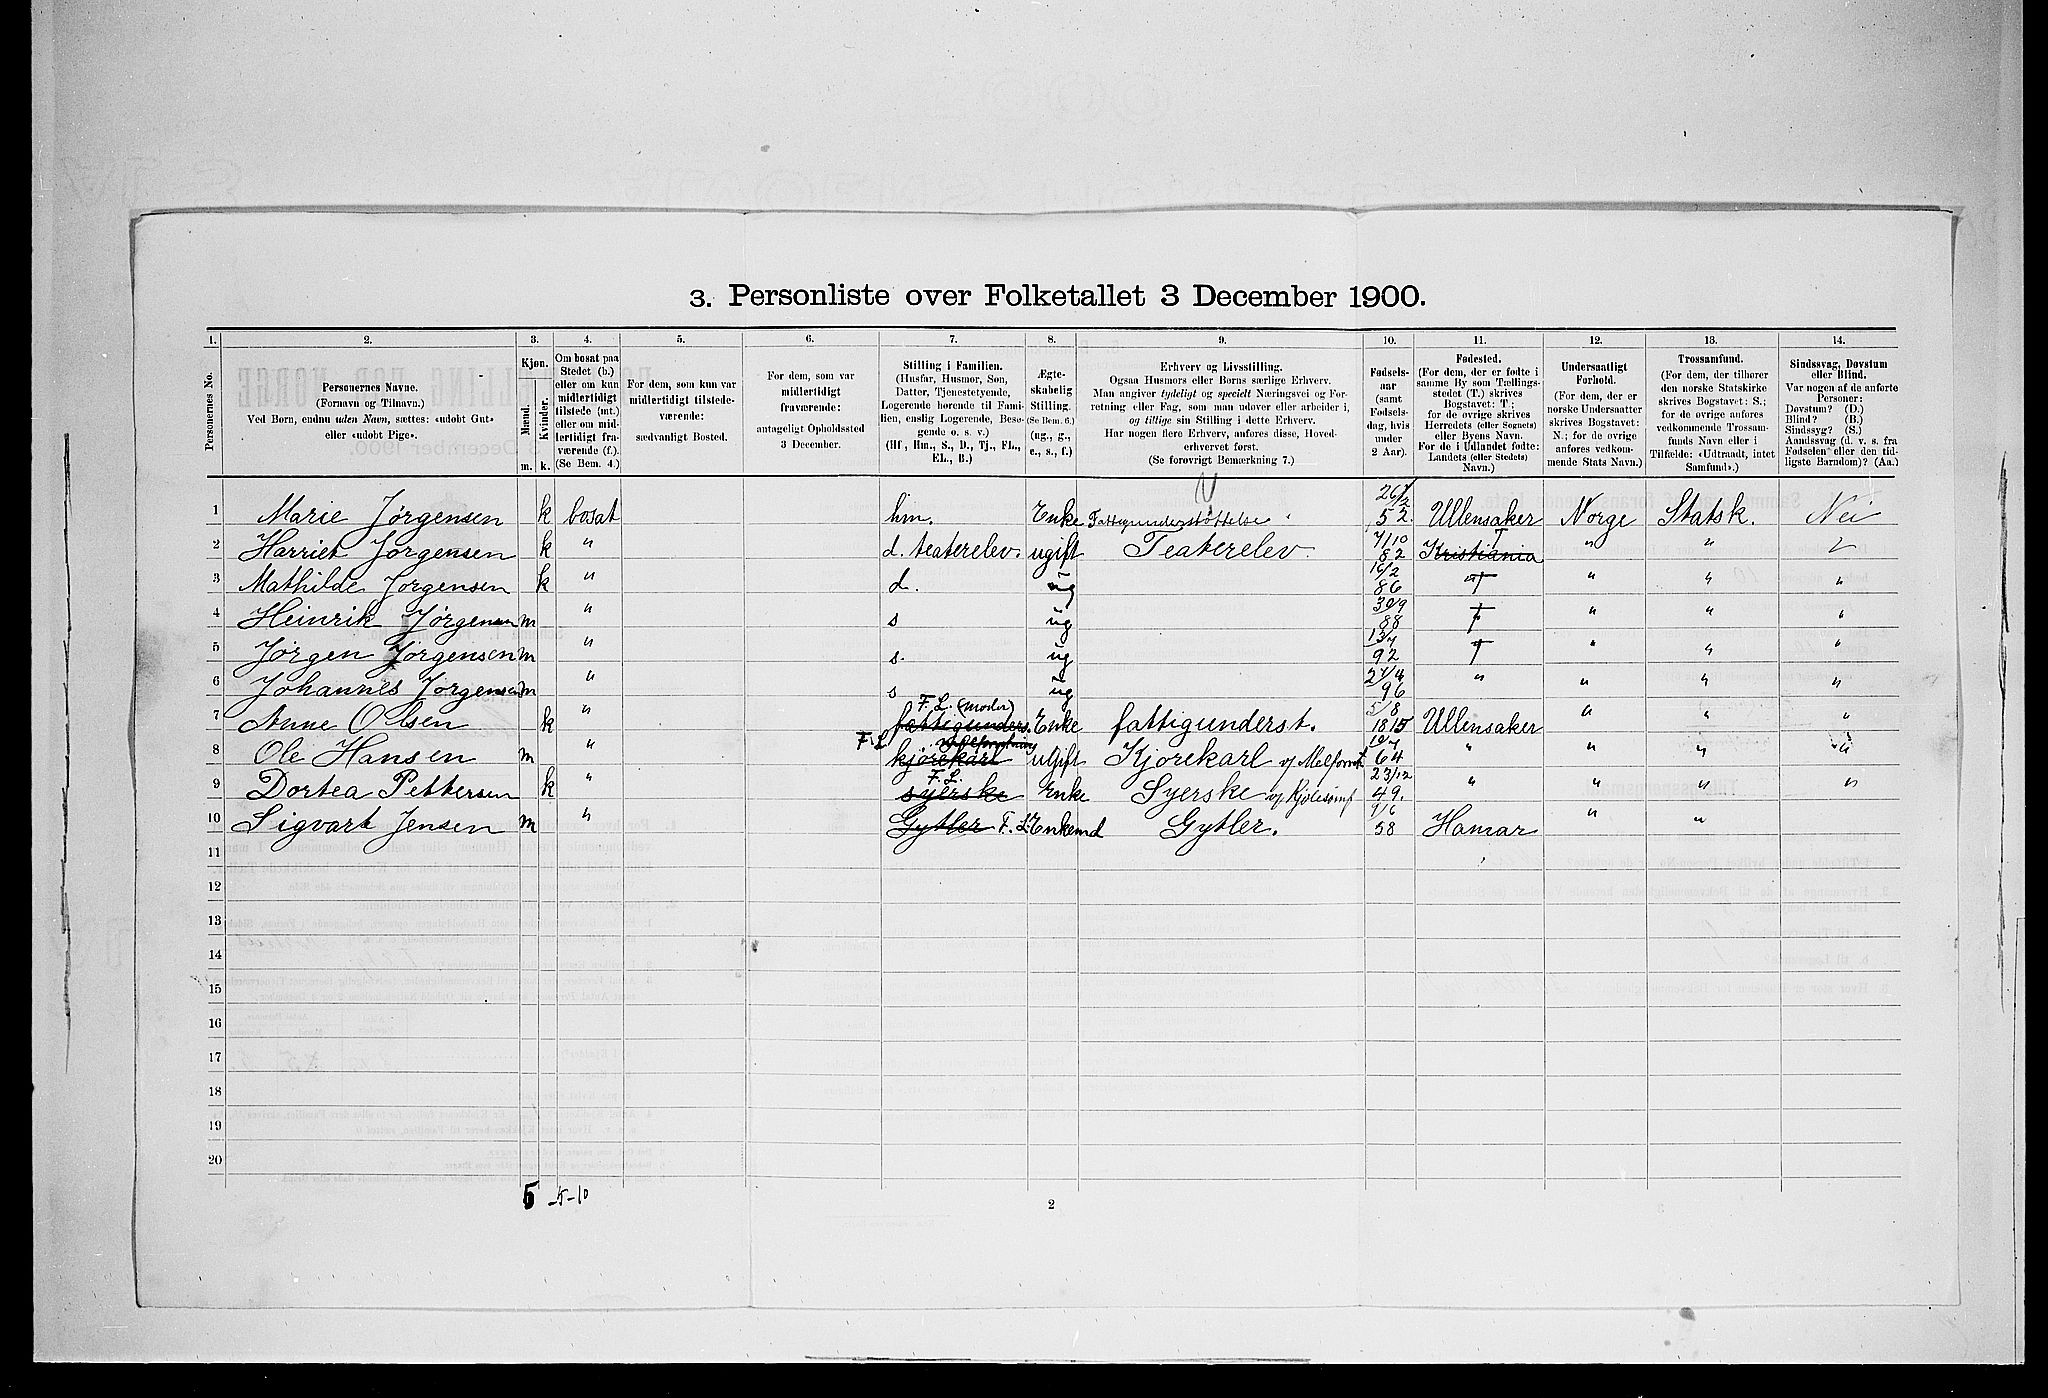 3. Personliste over Folketallet 3 December 1900.
1. 2. 3. 4. 5. 6. 7. 8. 9. 10. 11. 12. 13. 14.
Personernes No.
Personernes Navne.
(Fornavn og Tilnavn.)
Ved Børn, endnu uden Navn, sættes: «udøbt Gut»
eller «udøbt Pige».
Kjøn.
Mænd. Kvinder.
m. k.
Om bosat paa
Stedet (b.)
eller om kun
midlertidigt
tilstede (mt.)
eller om mid-
lertidigt fra-
værende (f.).
(Se Bem. 4.)
For dem, som kun var
midlertidigt tilstede-
værende:
sædvanligt Bosted.
For dem, som var
midlertidigt
fraværende:
antageligt Opholdssted
3 December.
Stilling i Familien.
(Husfar, Husmor, Søn,
Datter, Tjenestetyende,
Logerende hørende til Fami-
lien, enslig Logerende, Besø-
gende o. s. v.)
(Hf, Hm., S., D., Tj., FL.,
EL., B.)
Ægte-
skabelig
Stilling.
(Se Bem. 6.)
(ug., g.,
e., s., f.)
Erhverv og Livsstilling.
Ogsaa Husmors eller Børns særlige Erhverv.
Man angiver tydeligt og specielt Næringsvei og For-
retning eller Fag, som man udøver eller arbeider i,
og tillige sin Stilling i dette Erhverv.
Har nogen flere Erhverv, anføres disse, Hoved-
erhvervet først.
(Se forøvrigt Bemærkning 7.)
Fødsels-
aar
(samt
Fødsels-
dag, hvis
under
2 Aar).
Fødested.
(For dem, der er fødte i
samme By som Tællings-
stedet (T.) skrives
Bogstavet: T;
for de øvrige skrives
Herredets (eller Sognets)
eller Byens Navn.
For de i Udlandet fødte:
Landets (eller Stedets)
Navn.)
Undersaatligt
Forhold.
(For dem, der er
norske Undersaatter
skrives Bogstavet:
N.; for de øvrige
anføres vedkom-
mende Stats Navn.)
Trossamfund.
(For dem, der tilhører
den norske Statskirke
skrives Bogstavet: S.;
for de øvrige anføres
vedkommende Trossam-
funds Navn eller i
Tilfælde: «Udtraadt, intet
Samfund».)
Sindssvag, Døvstum
eller Blind.
Var nogen af de anførte
Personer:
Døvstum? (D.)
Blind? (B.)
Sindssyg? (S.)
Aandssvag (d. v. s. fra
Fødselen eller den tid-
ligste Barndom)? (Aa.)
1 Marie Jørgensen k bosat hm. Enke Fattigunderstøttelse 26/2 52. Ullensaker Norge Statsk. Nei
2 Harriet Jørgensen k " d. teaterelev. ugift Teaterelev 7/10 82 Kristiania T " "
3 Mathilde Jørgensen k " d. ug 16/2 86 T " " "
4 Heinrik Jørgensen m " s ug 30/9 88 T " " "
5 Jørgen Jørgensen m " s. ug 13/7 92 T " " "
6 Johannes Jørgensen m " s ug 27/4 96 " " " "
7 Anne Olsen k " F. L. (moder) fattigunders. Enke fattigunderst. 5/8 1815 Ullensaker " " "
8 Ole Hansen m " F. L. kjørekarl ugift Kjørekarl 64 " " " "
9 Dortea Pettersen k " F. L. syerske Enke Syerske 23/12 49. " " " "
10 Sigvart Jensen m " Gytler F. L. Enkemd Gytler. 9/6 58 Hamar " "
11
12
13
14
15
16
17
18
19
20
5 - 5 - 10
2